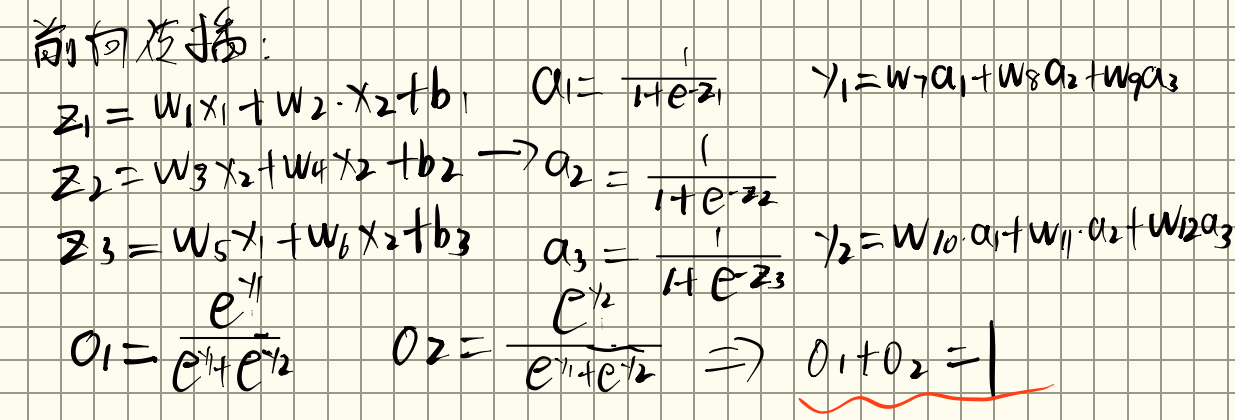 前向传播:
z₁ = w₁x₁ + w₂·x₂ + b₁   a₁ = 1/(1+e^-z₁)   y₁ = w₇a₁ + w₈a₂ + w₉a₃
z₂ = w₃x₂ + w₄x₂ + b₂ → a₂ = 1/(1+e^-z₂)
z₃ = w₅x₁ + w₆x₂ + b₃   a₃ = 1/(1+e^-z₃)   y₂ = w₁₀·a₁ + w₁₁·a₂ + w₁₂a₃
O₁ = e^y₁/(e^y₁ + e^-y₂)   O₂ = e^y₂/(e^y₁ + e^-y₂) ⇒ O₁ + O₂ = 1